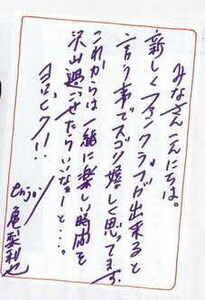 みなさんこんにちは。
新しくファンクラブが出来ると
言う事でスゴク嬉しく思ってます
これからは一緒に楽しい時間を
沢山過ごせたらいいなーと・・・。
ヨロピク!!
Enjoi
亀梨和也